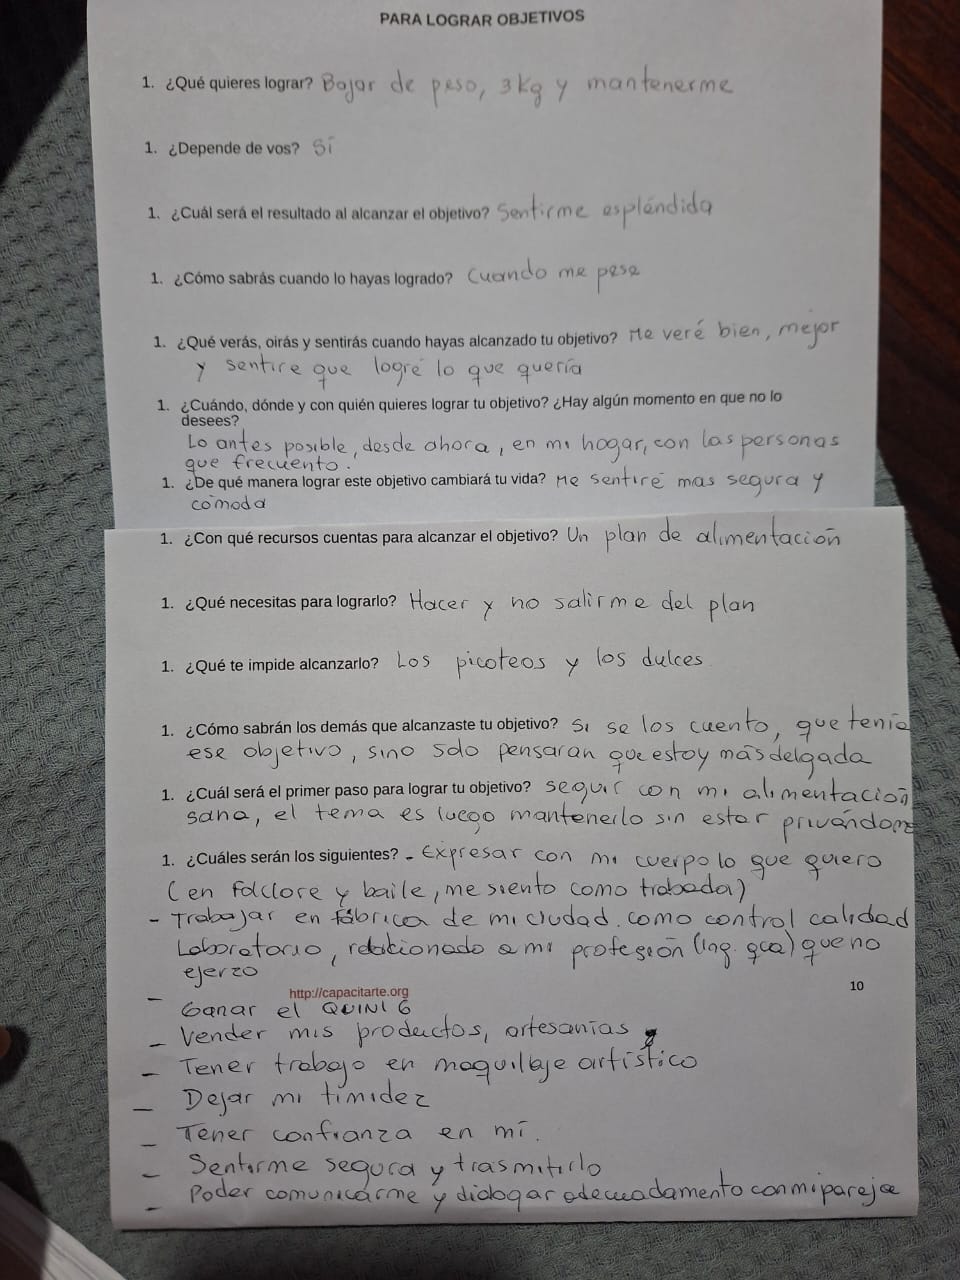 PARA LOGRAR OBJETIVOS
1. ¿Qué quieres lograr? Bajar de peso, 3kg y mantenerme
1. ¿Depende de vos? Sí
1. ¿Cuál será el resultado al alcanzar el objetivo? Sentirme espléndida
1. ¿Cómo sabrás cuando lo hayas logrado? Cuando me pese
1. ¿Qué verás, oirás y sentirás cuando hayas alcanzado tu objetivo? Me veré bien, mejor
y sentire que logré lo que quería
1. ¿Cuándo, dónde y con quién quieres lograr tu objetivo? ¿Hay algún momento en que no lo
desees?
Lo antes posible, desde ahora, en mi hogar, con las personas
que frecuento.
1. ¿De qué manera lograr este objetivo cambiará tu vida? Me sentiré mas segura y
cómoda
1. ¿Con qué recursos cuentas para alcanzar el objetivo? Un plan de alimentación
1. ¿Qué necesitas para lograrlo? Hacer y no salirme del plan
1. ¿Qué te impide alcanzarlo? Los picoteos y los dulces
1. ¿Cómo sabrán los demás que alcanzaste tu objetivo? Si se los cuento, que tenía
ese objetivo, sino solo pensaran que estoy más delgada
1. ¿Cuál será el primer paso para lograr tu objetivo? seguir con mi alimentación
sana, el tema es luego mantenerlo sin estar privándome
1. ¿Cuáles serán los siguientes? - Expresar con mi cuerpo lo que quiero
(en folclore y baile, me siento como trabada)
- Trabajar en fábrica de mi ciudad. como control calidad
Laboratorio, relacionado a mi profesión (ing. qca) que no
ejerzo
10
http://capacitarte.org
- Ganar el QUINI 6
- Vender mis productos, artesanías
- Tener trabajo en maquillaje artístico
- Dejar mi timidez
- Tener confianza en mí.
- Sentirme segura y trasmitirlo
- Poder comunicarme y dialogar adecuadamento con mi pareja